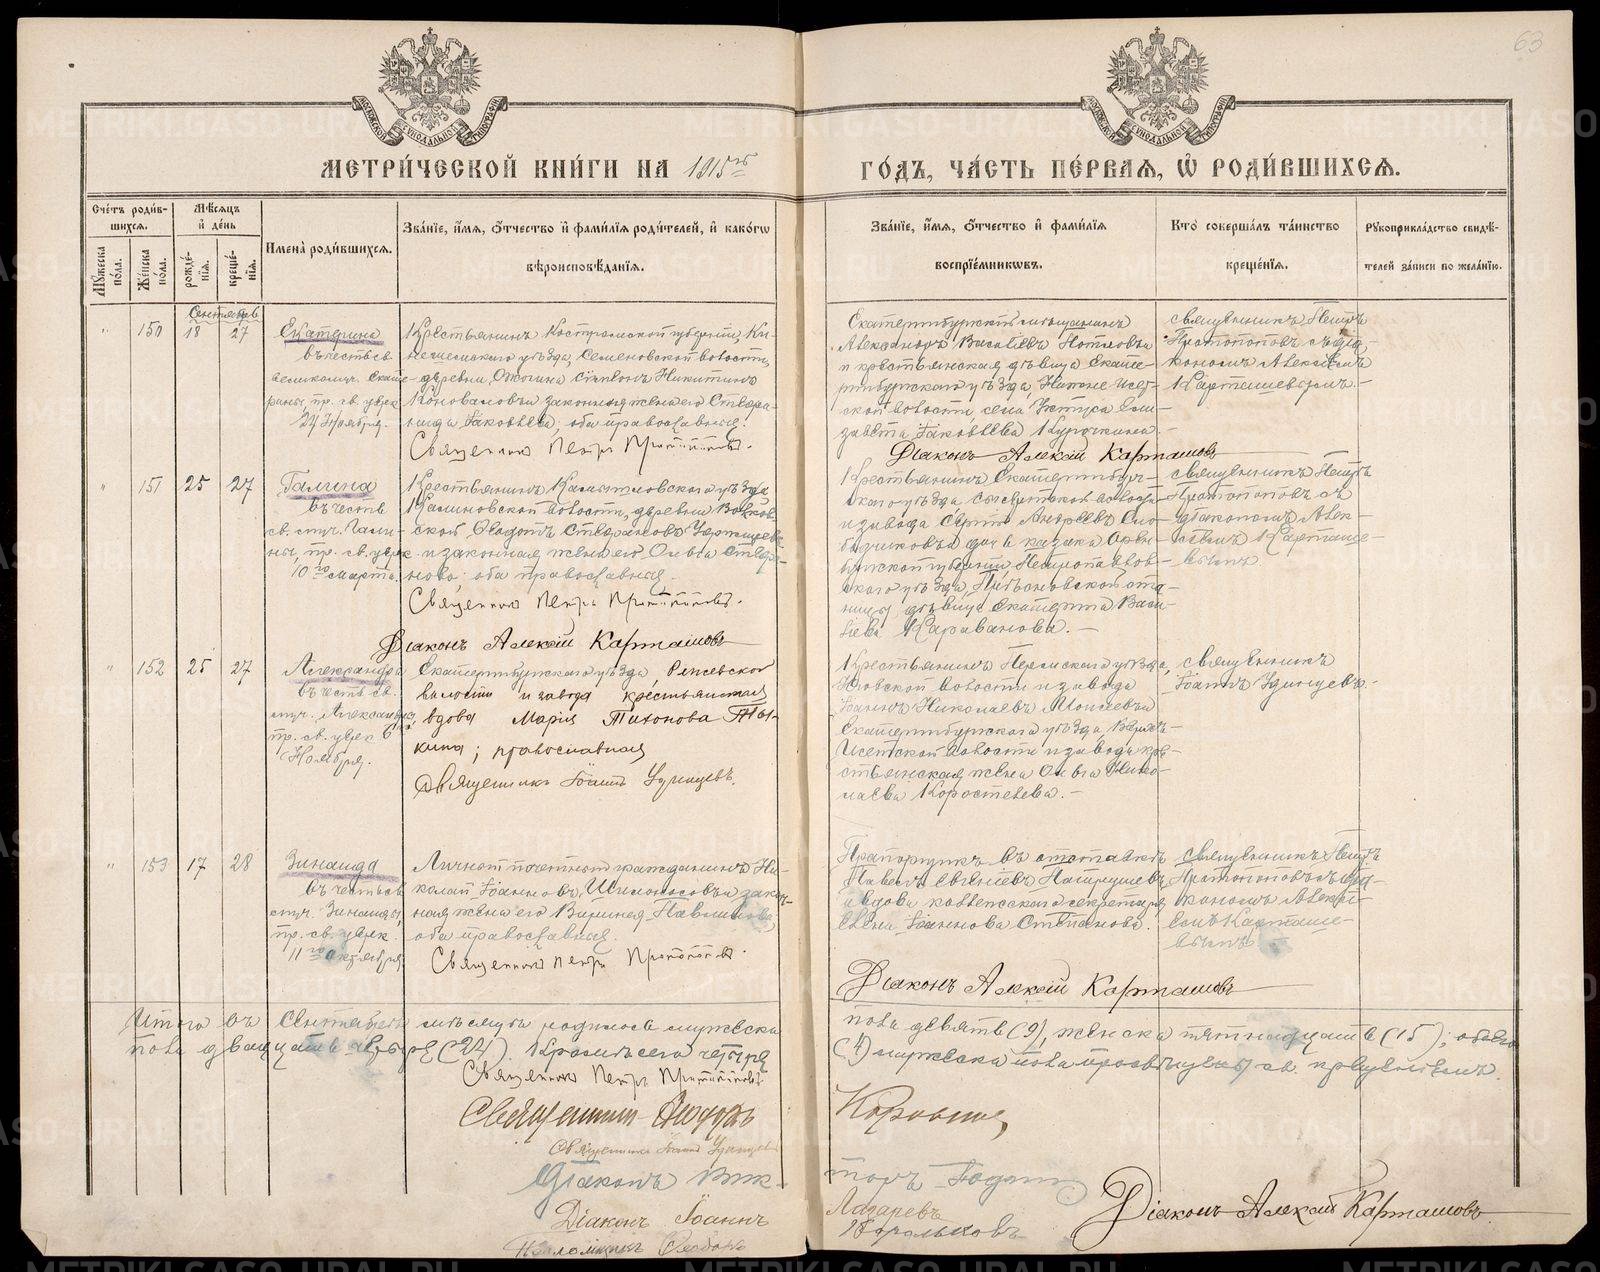 63
МОСКОВСКОЙ СѴНОДАЛЬНОЙ ТИПОГРАФІИ
МОСКОВСКОЙ СѴНОДАЛЬНОЙ ТИПОГРАФІИ
МЕТРИ́ЧЕСКОЙ КНИ́ГИ НА 1915й
ГО́ДЪ, ЧА́СТЬ ПЕ́РВАЯ, Ѽ РОДИ́ВШИХСЯ.
Сче́тъ роди́в-
шихся.
Мѣ́сяцъ
и҆ де́нь
Мꙋ́жеска по́ла.
Же́нска по́ла.
рожде́-нїя.
креще́-нїя.
И҆мена̀ роди́вшихся.
Зва́нїе, и҆́мя, ѻ҆́тчество и҆ фами́лїя роди́телей, и҆ како́гѡ
вѣроисповѣ́данїя.
Зва́нїе, и҆́мя, ѻ҆́тчество и҆ фами́лїя
воспрїе́мникѡвъ.
Кто̀ соверша́лъ та́инство
креще́нїя.
Рꙋкоприкла́дство свидѣ́-
телей за́писи по жела́нїю.
Сентябрь
" 150 18 27
Екатерина
въ честь св.
великомуч. Екате-
рины, пр. св. церк.
24 Ноября.
Крестьянинъ Костромской губерніи, Ки-
нешемскаго уѣзда, Семеновской волости,
деревни Стефанъ Никитинъ
Коноваловъ и законная жена его Стефа-
нида Іаковлева, оба православныя.
Священникъ Петръ Протопоповъ.
Екатеринбургскій мѣщанинъ
Александръ Василіевъ
и крестьянская дѣвица Екате-
ринбургскаго уѣзда, Нижне-Исет-
ской волости, села Уктуса Ели-
завета Іаковлева Курочкина.
Діаконъ Алексій Карташовъ
священникъ Петръ
Протопоповъ съ діа-
кономъ Алексіемъ
Карташевымъ.
" 151 25 27
Галина
въ честь
св. муч. Гали-
ны, пр. св. церк.
10го марта
Крестьянинъ Камышловскаго уѣзда
Калиновской волости, деревни
Ѳеодотъ Стефановъ
и законная жена его Ольга Стефа-
нова оба православныя.
Священникъ Петръ Протопоповъ.
Діаконъ Алексій Карташовъ
Крестьянинъ Екатеринбург-
скаго уѣзда Сысертской волости
и завода Сергій Андреевъ Сло-
бодчиковъ и дочь казака Орен-
бургской губерніи, Петропавлов-
скаго уѣзда, ста-
ницы дѣвица Екатерина Васи-
ліева Караванова.
священникъ Петръ
Протопоповъ съ
діакономъ Алек-
сіемъ Карташе-
вымъ.
" 152 25 27
Александра
въ честь св.
муч. Александры,
пр. св. церк. 6
Ноября.
Екатеринбургскаго уѣзда, Режевской
волости и завода крестьянская
вдова Марія Тихонова
православная
Священникъ Іоаннъ Удинцевъ.
Крестьянинъ Пермскаго уѣзда,
Юговской волости и завода
Іаннъ Николаевъ Моисеевъ
Екатеринбургскаго уѣзда, Верхъ-
Исетской волости и завода кре-
стьянская жена Ольга Нико-
лаева Коростелева.
священникъ
Іоаннъ Удинцевъ.
" 153 17 28
Зинаида
въ честь св.
муч. Зинаиды,
пр. св. церк.
11го октября
Личный почетный гражданинъ Ни-
колай Іоанновъ и закон-
ная жена его Виринея Павлинова,
оба православныя.
Священникъ Петръ Протопоповъ.
Прапорщикъ въ отставкѣ
Павелъ Евгеніевъ Патрушевъ
и вдова коллежскаго секретаря
Елена Іоаннова Степанова.
священникъ Петръ
Протопоповъ съ діа-
кономъ Алексі-
емъ Карташе-
вымъ
Діаконъ Алексій Карташовъ
Итого въ Сентябрѣ мѣсяцѣ родилось мужеска
пола девять (9), женска пятнадцать (15); обоего
пола двадцать четыре (24). Кромѣ сего четыре
(4) мужеска пола просвѣщены св. крещеніемъ.
Священникъ Петръ Протопоповъ
Священникъ Ѳеодоръ
Коровинъ
Священникъ Іоаннъ Удинцевъ
Діаконъ Вик-
торъ
Діаконъ Іоаннъ
Лазаревъ
Діаконъ Алексій Карташовъ
Псаломщикъ Ѳеодоръ
Корольковъ
METRIKI.GASO-URAL.RU